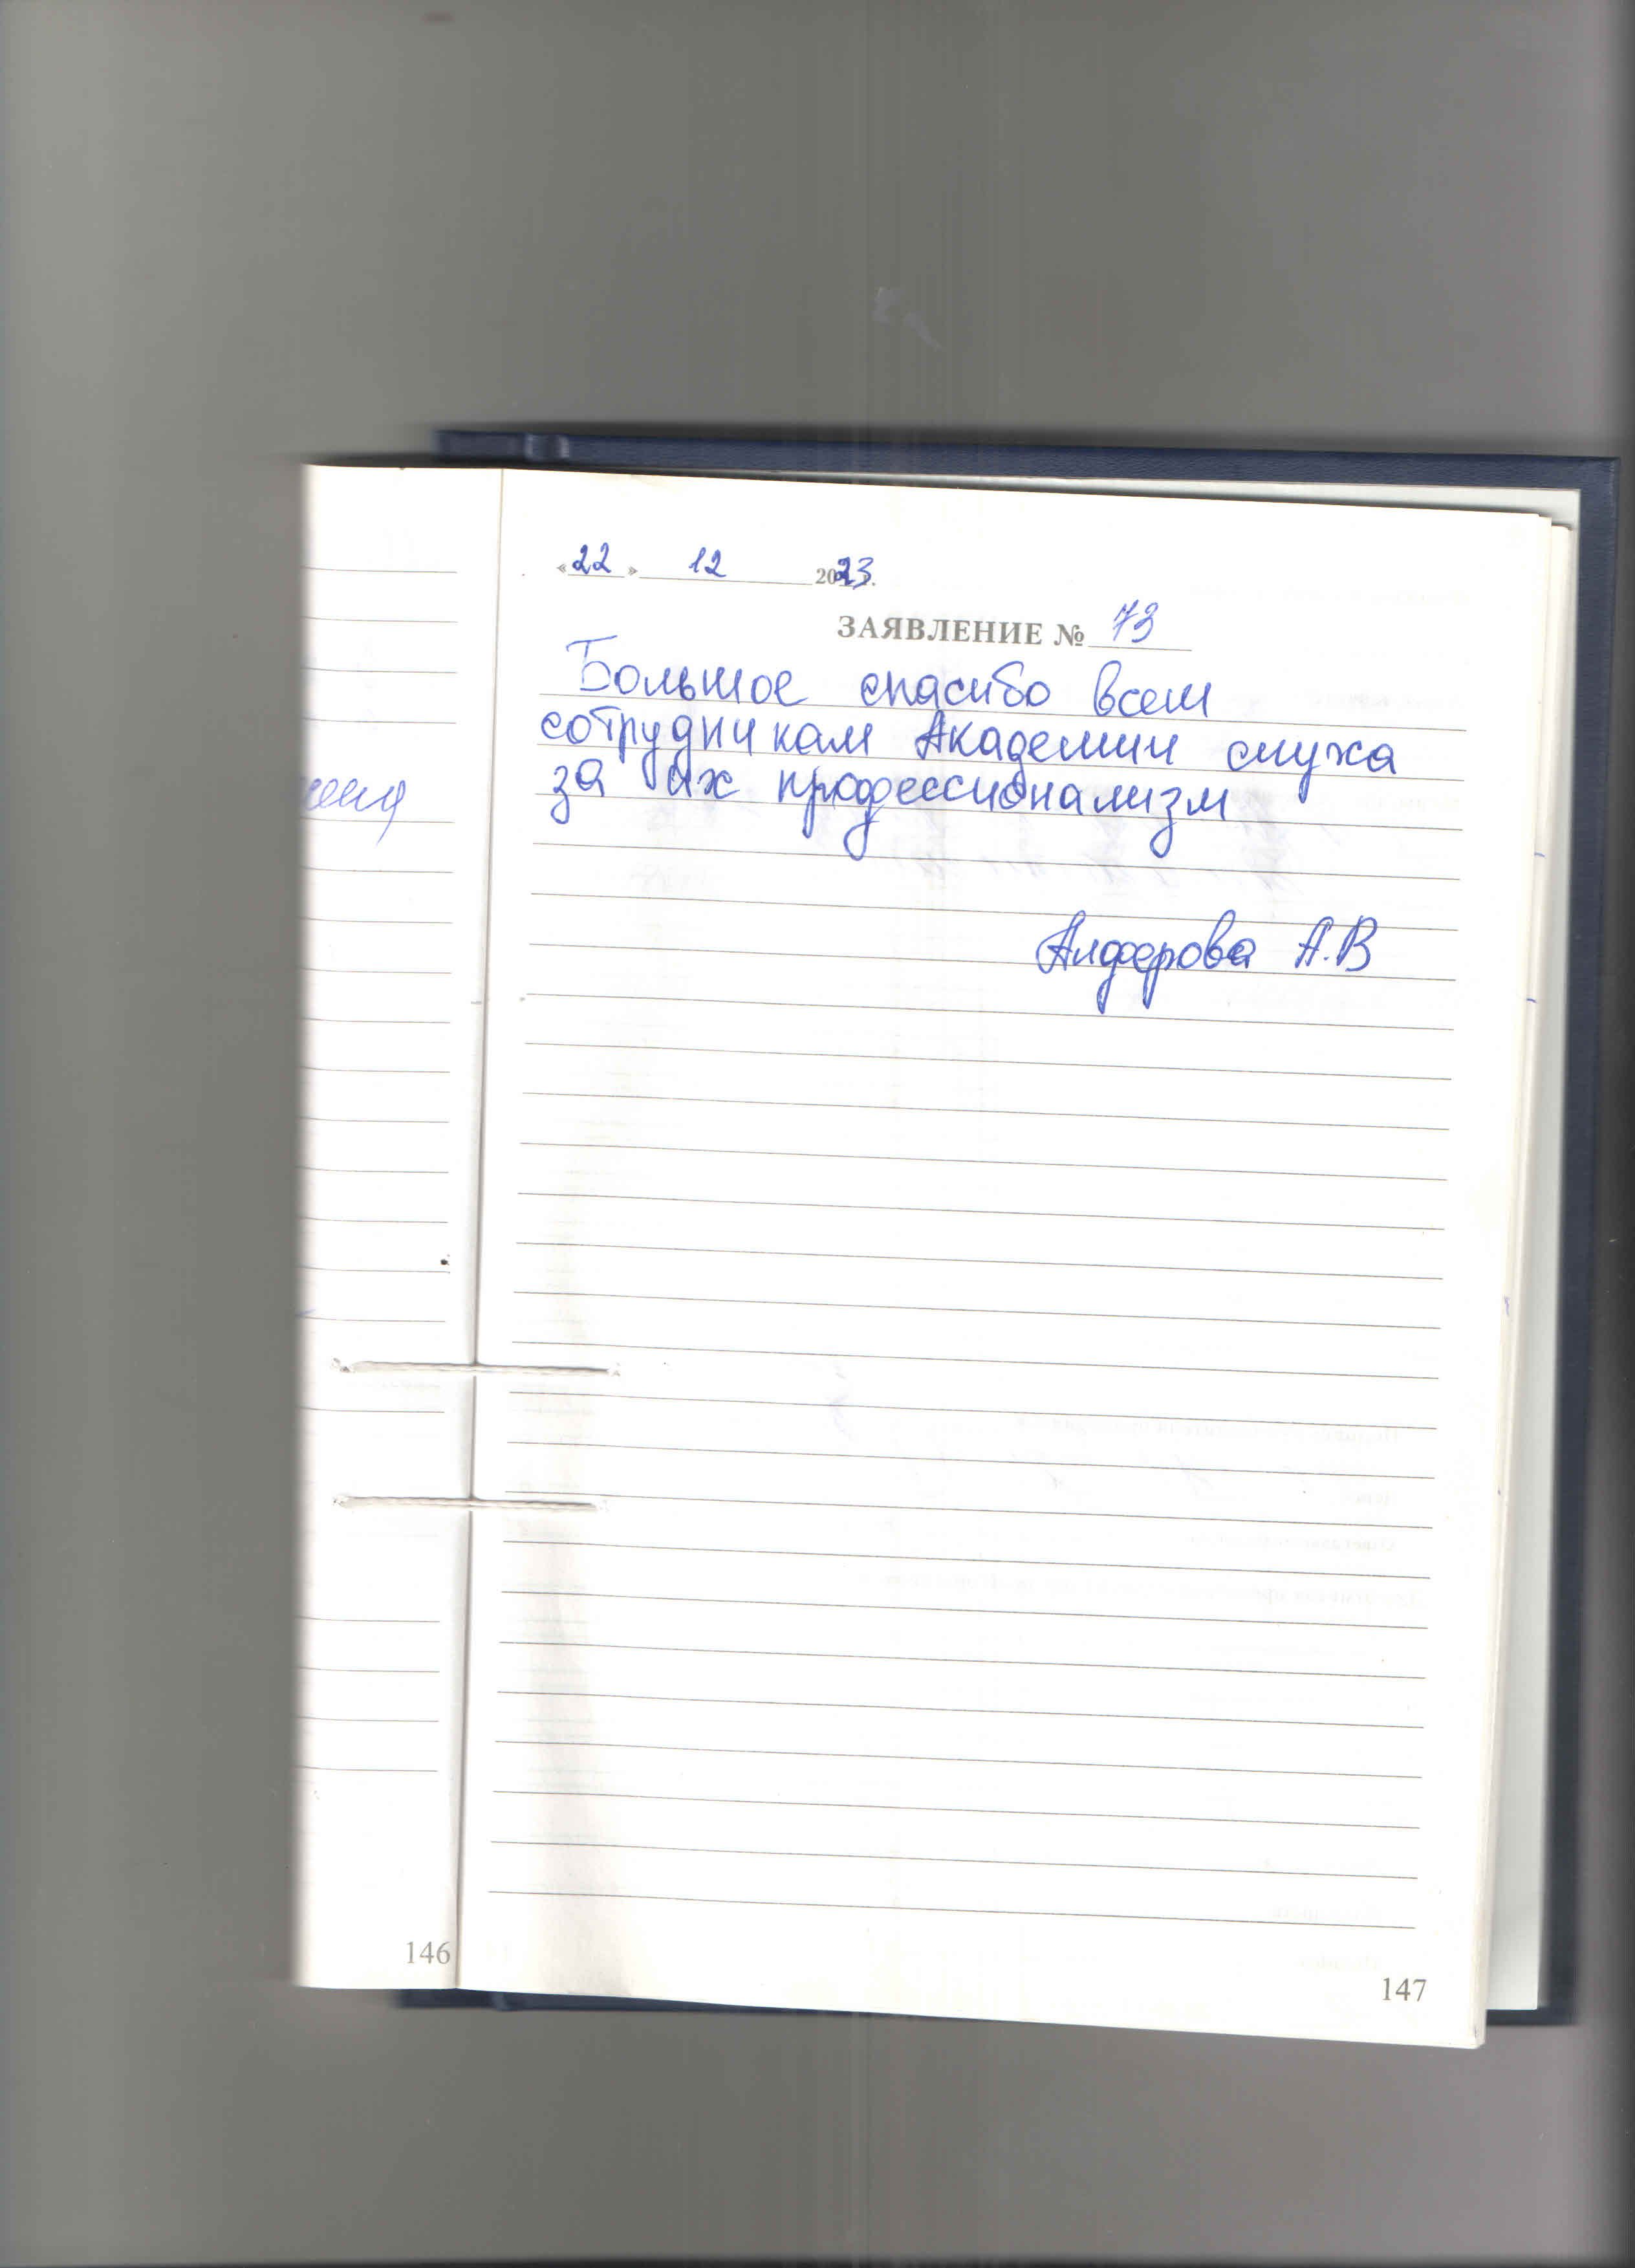 «22» 12 2023 г.
ЗАЯВЛЕНИЕ № 73
Большое спасибо всем
сотрудникам Академии слуха
за их профессионализм
Алферова А.В
146
147